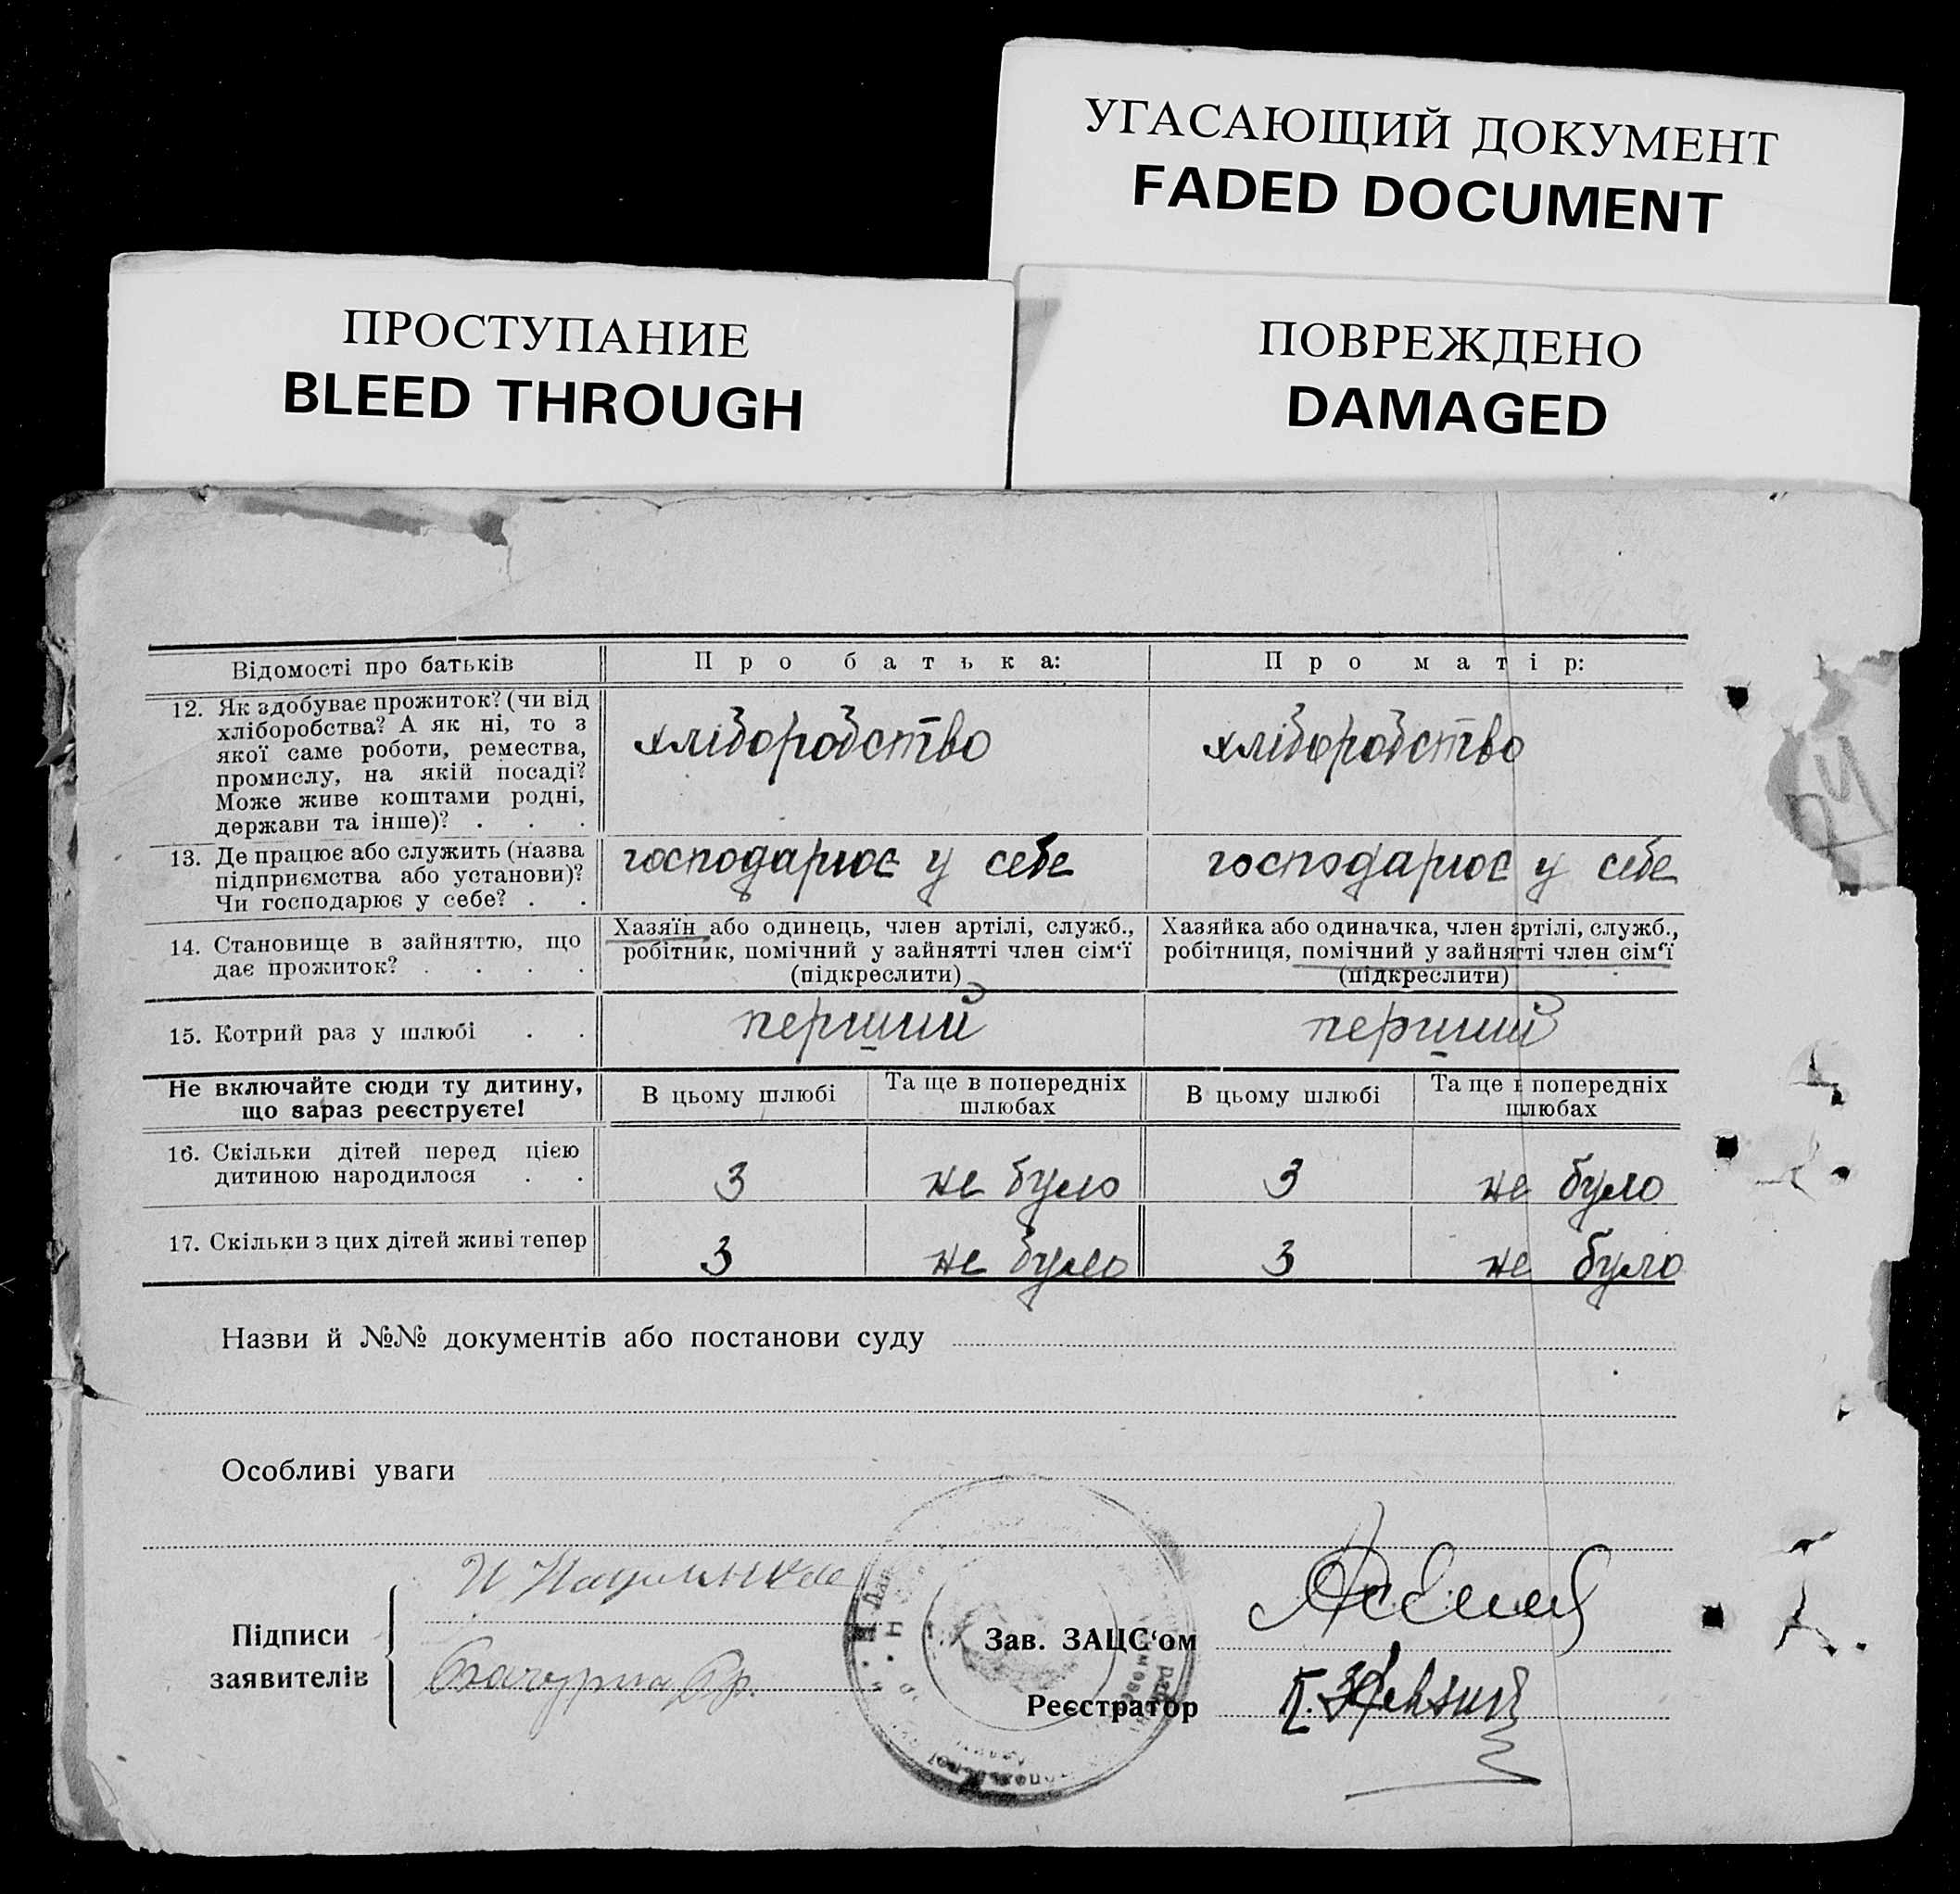 УГАСАЮЩИЙ ДОКУМЕНТ
FADED DOCUMENT
ПРОСТУПАНИЕ
BLEED THROUGH
ПОВРЕЖДЕНО
DAMAGED
Відомості про батьків
Про батька:
Про матір:
12. Як здобуває прожиток? (чи від
хліборобства? А як ні, то з
якої саме роботи, ремества,
промислу, на якій посаді?
Може живе коштами родні,
держави та інше)? . . .
хліборобство
хліборобство
13. Де працює або служить (назва
підприємства або установи)?
Чи господарює у себе? . .
господарює у себе
господарює у себе
14. Становище в зайняттю, що
дає прожиток? . . . .
Хазяїн або одинець, член артілі, служб.,
робітник, помічний у зайнятті член сім‘ї
(підкреслити)
Хазяйка або одиначка, член артілі, служб.,
робітниця, помічний у зайнятті член сім‘ї
(підкреслити)
15. Котрий раз у шлюбі . .
перший
перший
Не включайте сюди ту дитину,
що зараз реєструєте!
В цьому шлюбі
Та ще в попередніх
шлюбах
В цьому шлюбі
Та ще в попередніх
шлюбах
16. Скільки дітей перед цією
дитиною народилося . .
3
не було
3
не було
17. Скільки з цих дітей живі тепер
3
не було
3
не було
Назви й №№ документів або постанови суду
Особливі уваги
Підписи
заявителів
Зав. ЗАЦС‘ом
Реєстратор